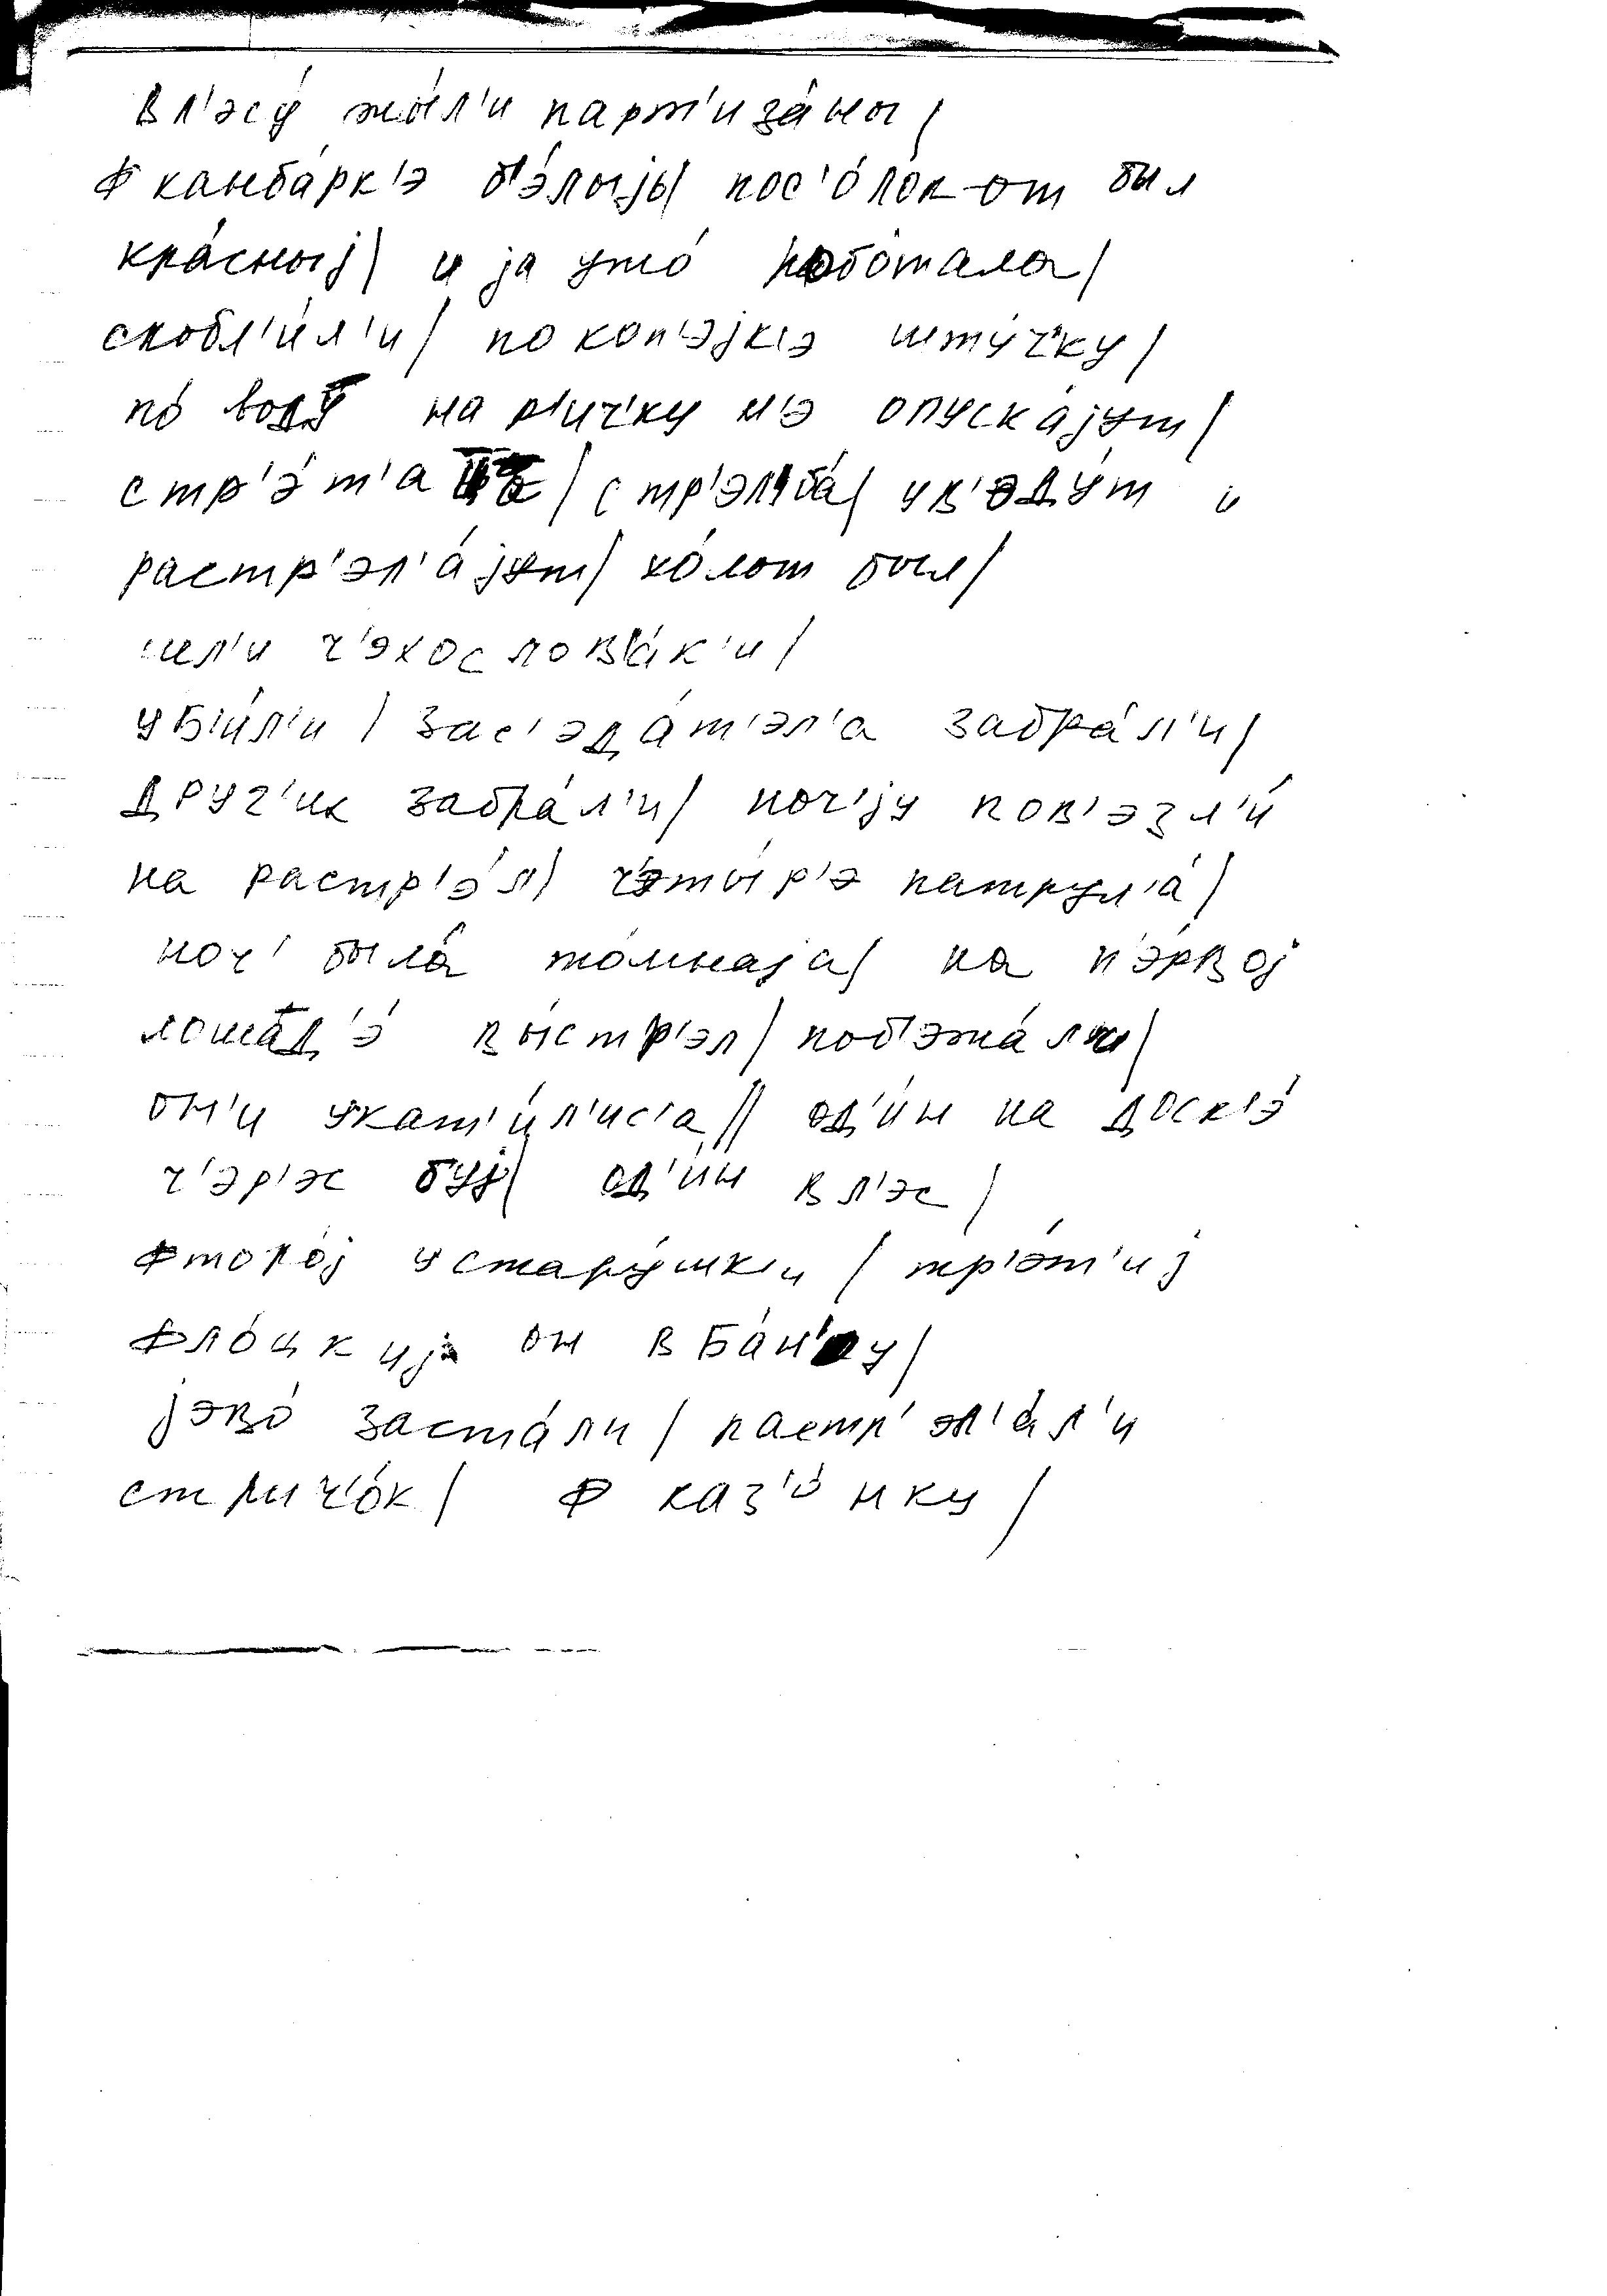 в л'эсу́ жы́л'и парт'иза́ны/
ф канба́рк'э б'э́лыjь/ пос'о́лок-от был
кра́сныj/ и jа ужо́ робо́тала/
скобл'и́л'и/ по коп'э́jк'э шту́ч'ку/
по́ воду на р'и́ч'ку н'э опуска́jут/
стр'э́т'а /стр'эл'ба́/ ув'эду́т и
растр'эл'а́jут/ хо́лот был/
шл'и ч'эхослова́к'и/
уб'и́л'и/ зас'эда́т'эл'а забра́л'и/
друг'их забра́л'и/ ноч'jу пов'эзл'и́
на растр'э́л/ ч'эты́р'э патрул'а́/
ноч' была́ то́мнаjа/ на п'э́рвоj
лошад'э́ вы́стр'эл/ поб'эжа́л'и/
он'и укат'и́л'ис'а// од'и́н на доск'э́
ч'эр'эс буj/ од'и́н в л'эс/
фторо́j у стару́шк'и/ тр'э́т'иj
фло́цкиjа он в ба́н'у/
jэво́ заста́ли/ растр'эл'а́л'и
стрич'о́к/ ф каз'о́нку/